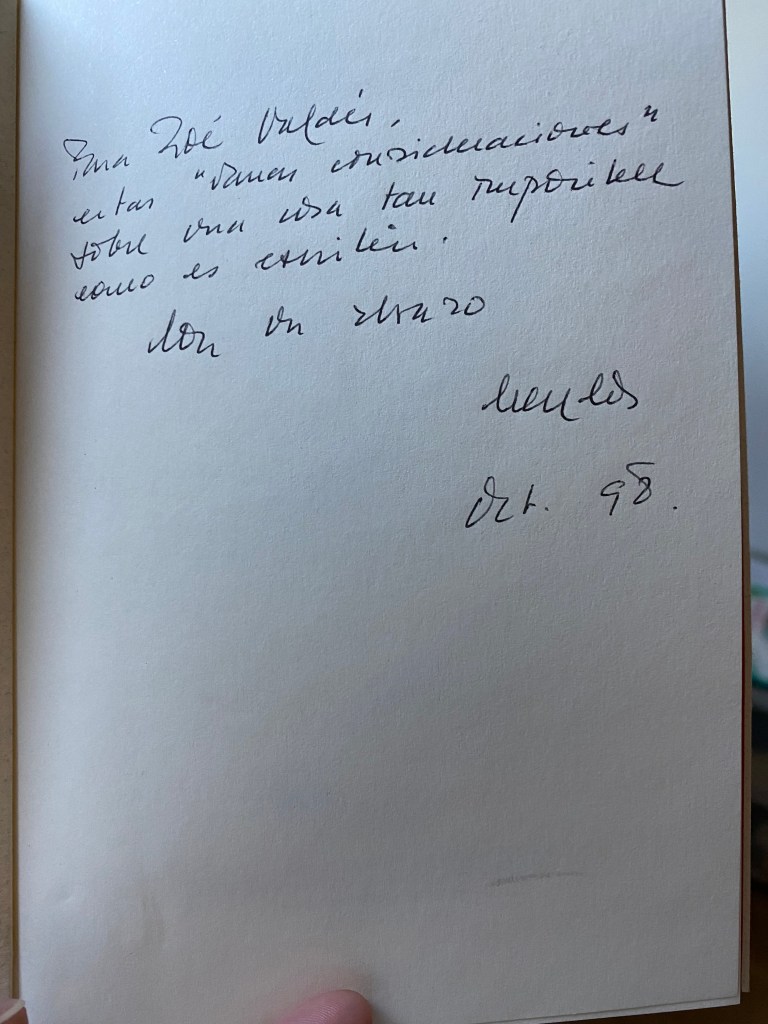 Para Zoé Valdés,
estas "vanas consideraciones"
sobre una cosa tan imposible
como es escribir.
Con un abrazo
Oct. 98.